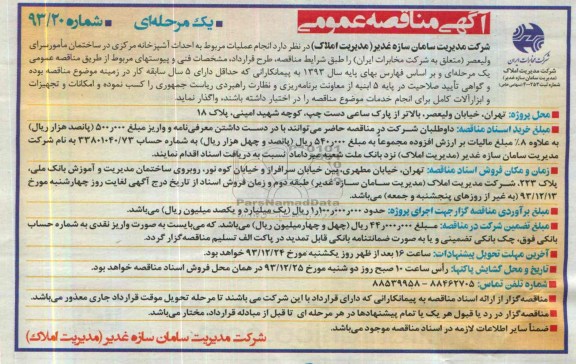 آگهی مناقصه عمومی
یک مرحله‌ای
شماره ۹۳/۲۰
شرکت مخابرات ایران
شرکت مدیریت املاک
شرکت مدیریت سامان سازه غدیر (مدیریت املاک) در نظر دارد انجام عملیات مربوط به احداث آشپزخانه مرکزی در ساختمان مأمورسرای
ولیعصر (متعلق به شرکت مخابرات ایران) را طبق شرایط مناقصه، طرح قرارداد، مشخصات فنی و پیوستهای مربوط از طریق مناقصه عمومی
یک مرحله‌ای و بر اساس فهارس بهای پایه سال ۱۳۹۳ به پیمانکارانی که حداقل دارای ۵ سال سابقه کار در زمینه موضوع مناقصه بوده
و گواهی تأیید صلاحیت در پایه ۵ ابنیه از معاونت برنامه‌ریزی و نظارت راهبردی ریاست جمهوری را کسب نموده و امکانات و تجهیزات
و ابزارآلات کامل برای انجام خدمات موضوع مناقصه را در اختیار داشته باشند، واگذار نماید.
محل پروژه: تهران، خیابان ولیعصر، بالاتر از پارک ساعی دست چپ، کوچه شهید امینی، پلاک ۱۸
مبلغ خرید اسناد مناقصه: داوطلبان شرکت در مناقصه حاضر می‌توانند با در دست داشتن معرفی‌نامه و واریز مبلغ ۵۰۰٫۰۰۰ (پانصد هزار ریال)
به علاوه ۸٪ مالیات بر ارزش افزوده مجموعاً به مبلغ ۵۴۰٫۰۰۰ ریال (پانصد و چهل هزار ریال) به شماره حساب ۳۳۸۰۱۰۴۰/۷۳ به نام شرکت
مدیریت سامان سازه غدیر (مدیریت املاک) نزد بانک ملت شعبه میرداماد نسبت به دریافت اسناد اقدام نمایند.
زمان و مکان فروش اسناد مناقصه: تهران، خیابان مطهری، بین خیابان سرافراز و خیابان کوه نور، روبروی ساختمان مدیریت و آموزش بانک ملی،
پلاک ۲۲۳، شرکت مدیریت املاک (مدیریت سامان سازه غدیر) طبقه دوم و زمان فروش اسناد از تاریخ درج آگهی لغایت روز چهارشنبه مورخ
۹۳/۱۲/۱۳ (به غیر از روزهای پنجشنبه و جمعه) می‌باشد.
مبلغ برآوردی مناقصه گزار جهت اجرای پروژه: حدود ۱٫۱۰۰٫۰۰۰٫۰۰۰ ریال (یک میلیارد و یکصد میلیون ریال) می‌باشد.
مبلغ تضمین شرکت در مناقصه: مبلغ ۴۴٫۰۰۰٫۰۰۰ ریال (چهل و چهار میلیون ریال) می‌باشد. که می‌بایست به صورت واریز نقدی به شماره حساب
بانکی فوق، چک بانکی تضمینی و یا به صورت ضمانتنامه بانکی قابل تمدید در پاکت الف تسلیم مناقصه گزار گردد.
آخرین مهلت تحویل پیشنهادات: ساعت ۱۶ بعد از ظهر روز یکشنبه مورخ ۹۳/۱۲/۲۴ خواهد بود.
تاریخ و محل گشایش پاکتها: رأس ساعت ۱۰ صبح روز دو شنبه مورخ ۹۳/۱۲/۲۵ در همان محل فروش اسناد مناقصه خواهد بود.
شماره تلفن تماس: ۸۸۴۶۲۷۰۵ – ۸۸۵۳۹۹۵۸
مناقصه‌گزار از ارائه اسناد مناقصه به پیمانکارانی که دارای قرارداد با این شرکت می باشند تا مرحله تحویل موقت قرارداد جاری معذور می‌باشد.
مناقصه‌گزار در رد یا قبول هر یک یا تمام پیشنهادها در هر مرحله ای تا قبل از مبادله قرارداد، مختار می‌باشد.
ضمناً سایر اطلاعات لازمه در اسناد مناقصه موجود می‌باشد.
شرکت مدیریت سامان سازه غدیر (مدیریت املاک)
ParsNamadData